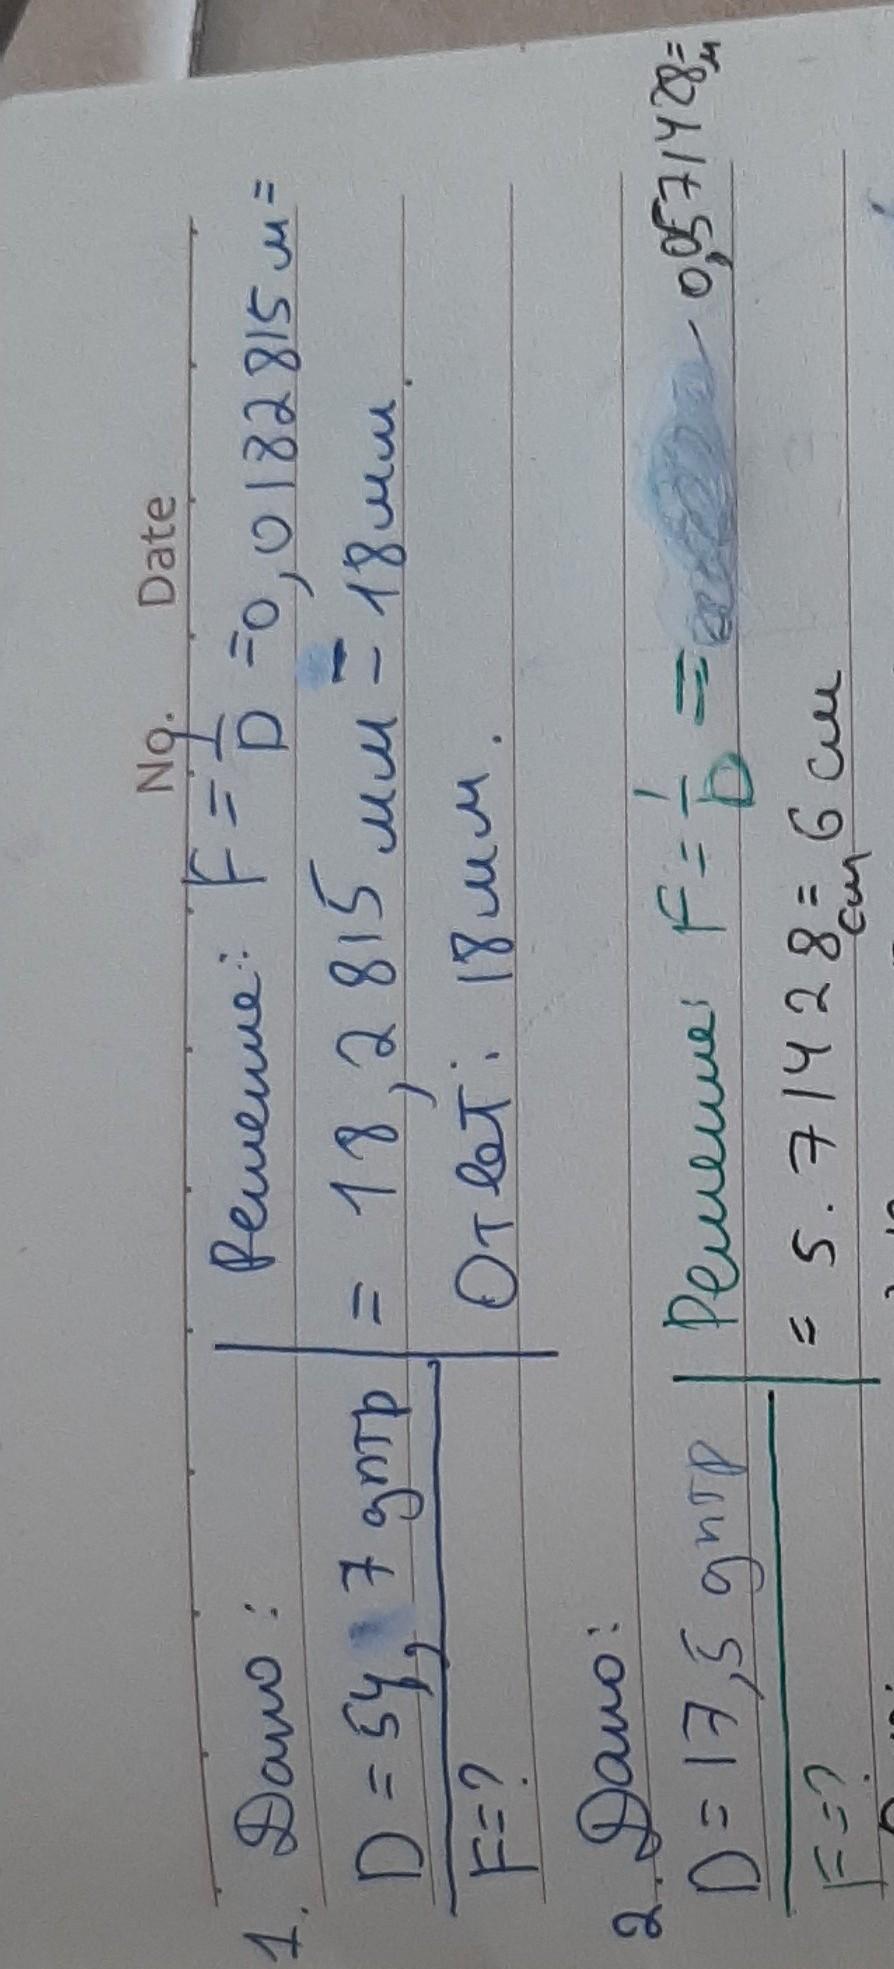 No. Date
1. Дано:
D = 54,7 дптр
F=?
Решение: F = 1/D = 0,0182815 м =
= 18,2815 мм = 18 мм.
Ответ: 18 мм.
2. Дано:
D = 17,5 дптр
F=?
Решение: F = 1/D = 0,0571428 м =
= 5.71428 см = 6 см